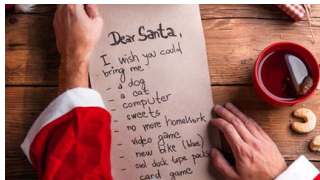 Dear Santa,
I wish you could
bring me
- a dog
- a cat
- computer
- sweets
- no more homework
- video game
- new bike (blue)
- cool duck tape pack
- card game